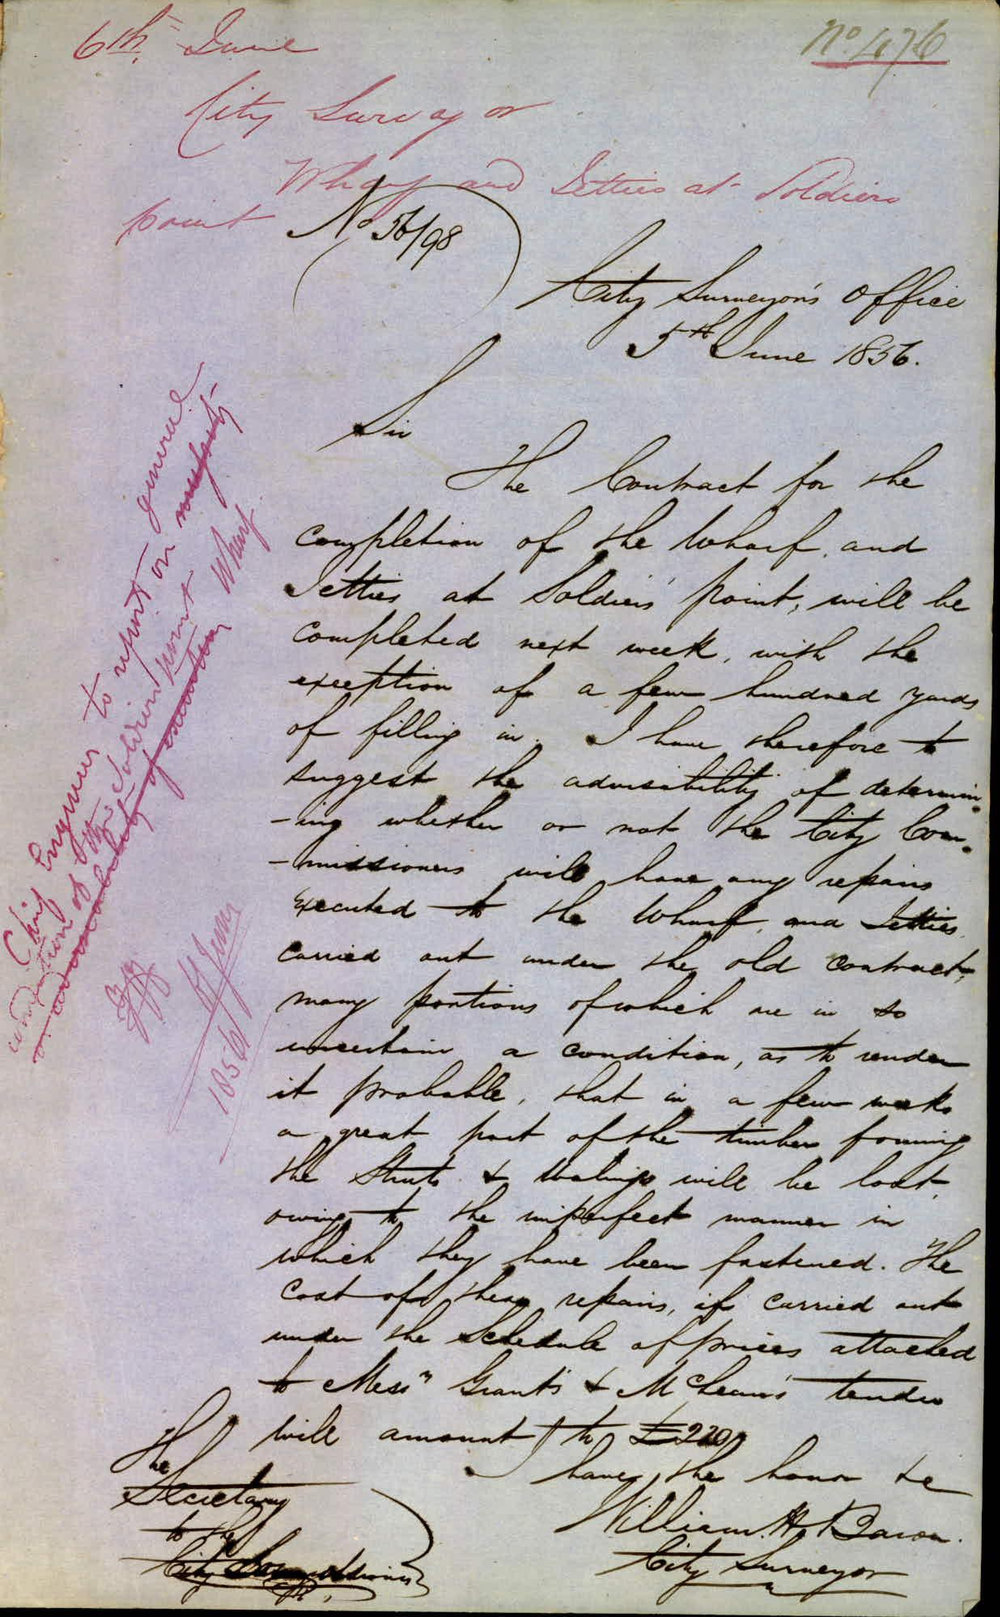 6th June
No 476
City Surveyor
Wharf and Jetties at Soldiers
point
No 56/98
City Surveyor's Office
5th June 1856.
Sir
The Contract for the
completion of the Wharf, and
Jetties at Soldiers' point, will be
completed next week, with the
exception of a few hundred yards
of filling in. I have therefore to
suggest the advisability of determin-
-ing whether or not the City Com-
-missioners will have any repairs
executed to the Wharf, and Jetties,
carried out under the old contract,
many portions of which are in so
uncertain a condition, as to render
it probable, that in a few weeks
a great part of the timber forming
the Struts & Walings will be lost,
owing to the imperfect manner in
which they have been fastened. The
cost of these repairs, if carried out
under the Schedule of prices attached
to Messrs Grant's & McLean's tender
will amount to £220
I have the honor &c
William H. Baron.
City Surveyor
The
Secretary
to the
City Commissioners
Chief Engineer to report on general
condition of the Soldiers point Wharf
June
1856